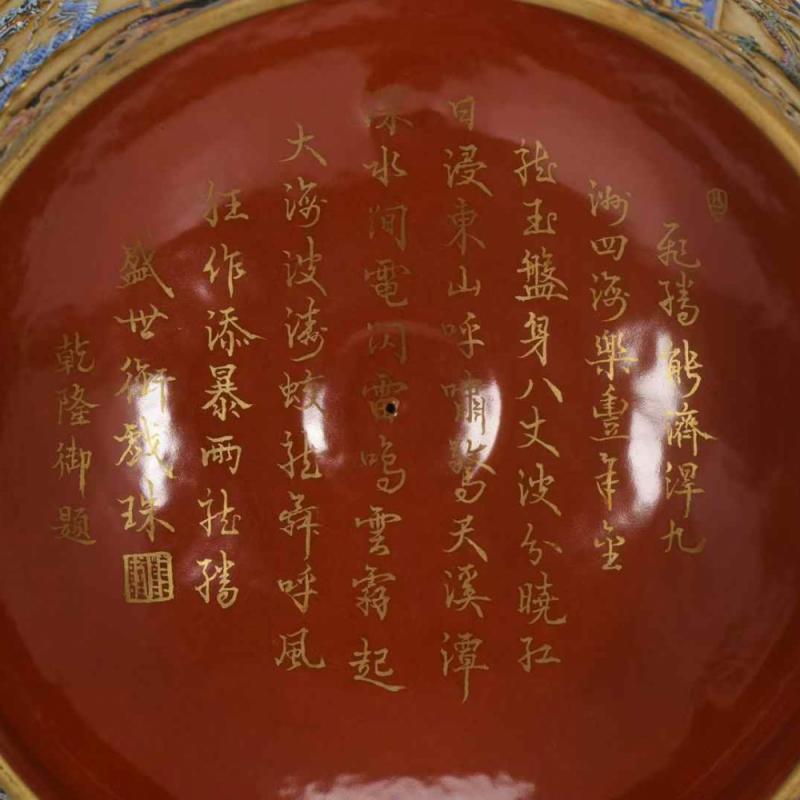 飛騰能濟澤九
洲四海樂豊年金
龍玉盤身八丈波分曉紅
日浸東山呼嘯驚天溪潭
水澗電閃雷鳴雲霧起
大海波濤蛟龍舞呼風
狂作添暴雨龍騰
盛世銜戲珠
乾隆御題